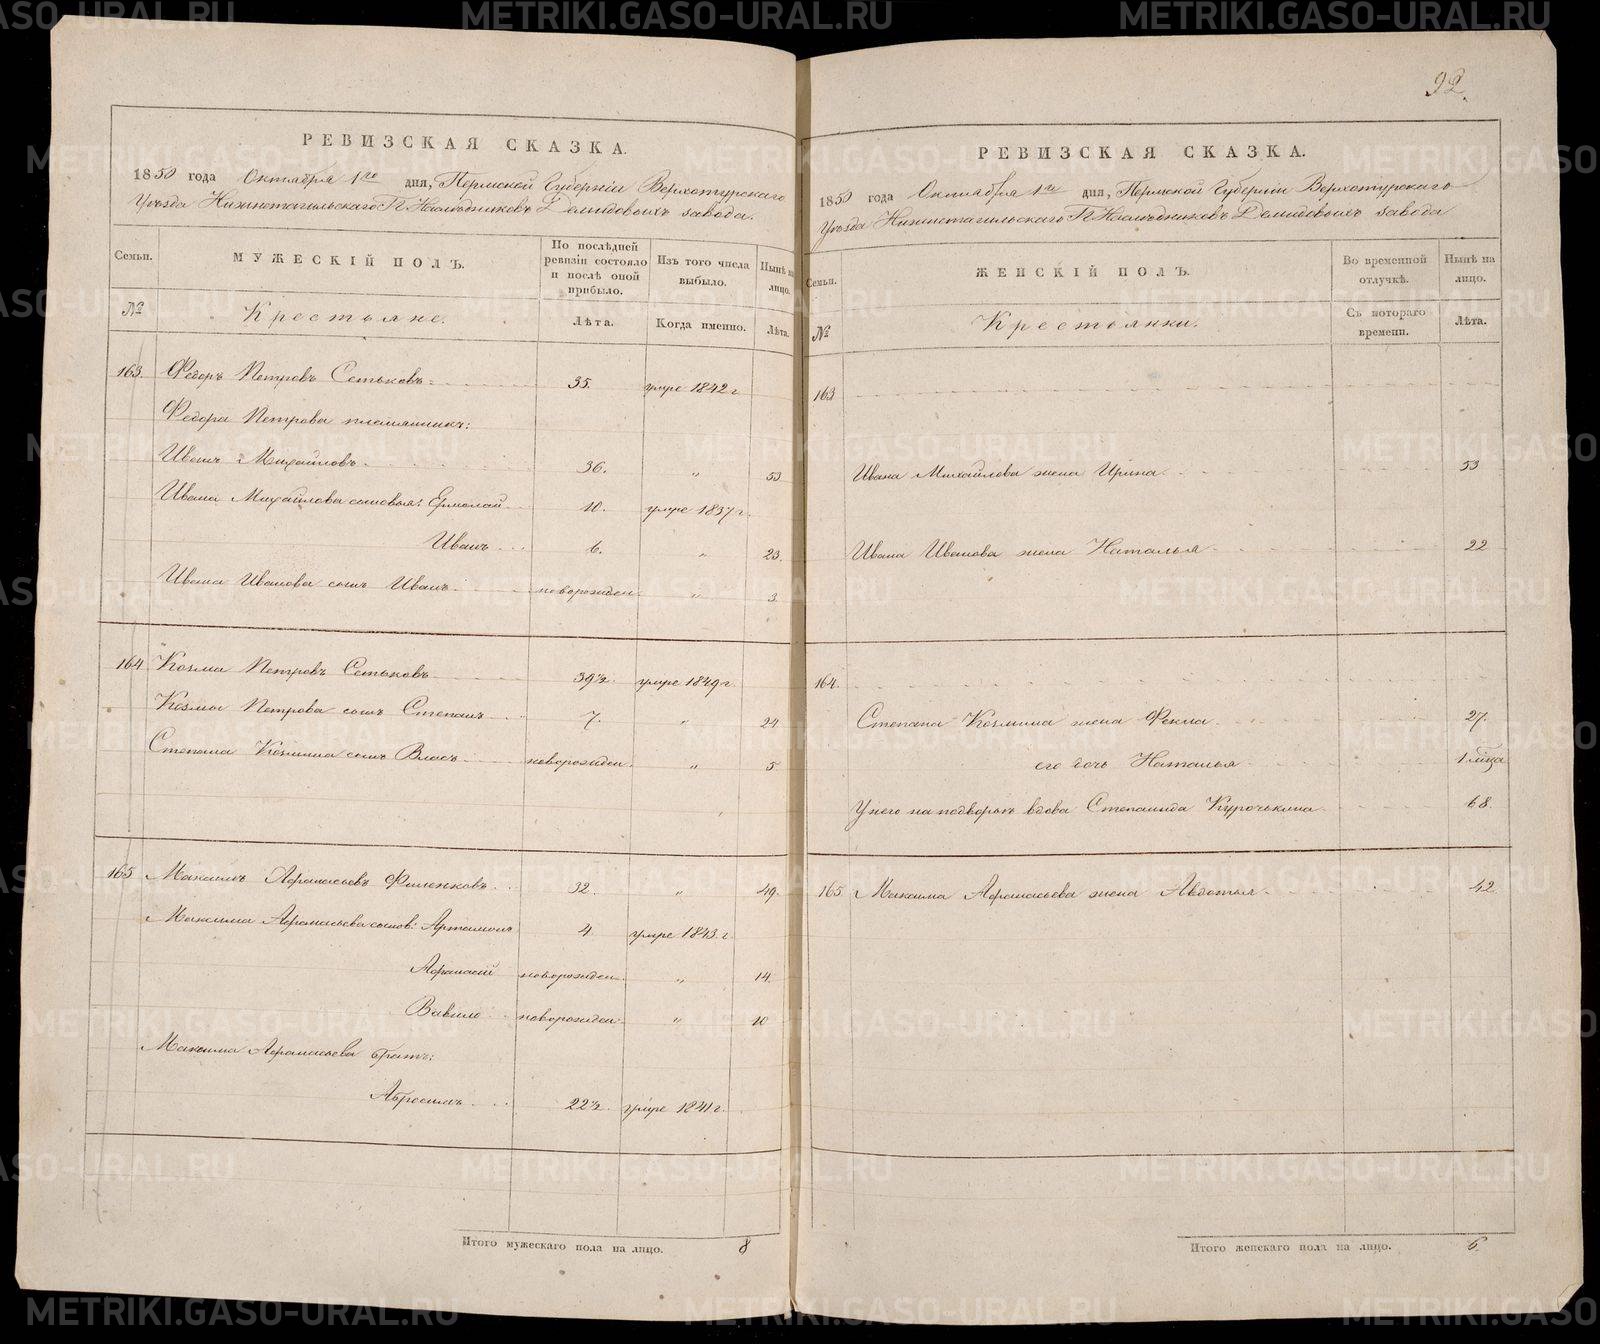 92.
РЕВИЗСКАЯ СКАЗКА.
1850 года Октября 1го дня, Пермской Губерніи Верхотурскаго
Уѣзда Нижнетагильскаго Г. Наслѣдниковъ Демидовыхъ завода.
Семьи.
МУЖЕСКІЙ ПОЛЪ.
По послѣдней ревизіи состояло и послѣ оной прибыло.
Изъ того числа выбыло.
Нынѣ на лицо.
№
Крестьяне.
Лѣта.
Когда именно.
Лѣта.
163. Федоръ Петровъ Сеньковъ 35. умре 1842 г
Федора Петрова племянникъ:
Иванъ Михайловъ 36. " 53
Ивана Михайлова сыновья: Ермолай 10. умре 1837 г.
Иванъ 6. " 23.
Ивана Иванова сынъ Иванъ новорожден. " 3
164 Козма Петровъ Сеньковъ 39½ умре 1849 г.
Козмы Петрова сынъ Степанъ 7. " 24
Степана Козмина сынъ Власъ новорожден. " 5
165 Максимъ Афанасьевъ 32. " 49.
Максима Афанасьева сынов: Артамонъ 4. умре 1843. г.
Афанасій новорожден. " 14.
Вавило новорожден " 10
Максима Афанасьева братъ:
Абросимъ 22½. умре 1841 г.
Итого мужескаго пола на лицо. 8
РЕВИЗСКАЯ СКАЗКА.
1850 года Октября 1го дня, Пермской Губерніи Верхотурскаго
Уѣзда Нижнетагильскаго Г. Наслѣдниковъ Демидовыхъ завода
Семьи.
ЖЕНСКІЙ ПОЛЪ.
Во временной отлучкѣ.
Нынѣ на лицо.
№
Крестьянки.
Съ котораго времени.
Лѣта.
163
Ивана Михайлова жена Ирина 53
Ивана Иванова жена Наталья 22
164.
Степана Козмина жена Фекла 27.
его дочь Наталья 1 мѣсяца
У него на подворьѣ вдова Степанида Курочкина 68.
165 Максима Афанасьева жена Авдотья 42
Итого женскаго пола на лицо. 6.
METRIKI.GASO-URAL.RU